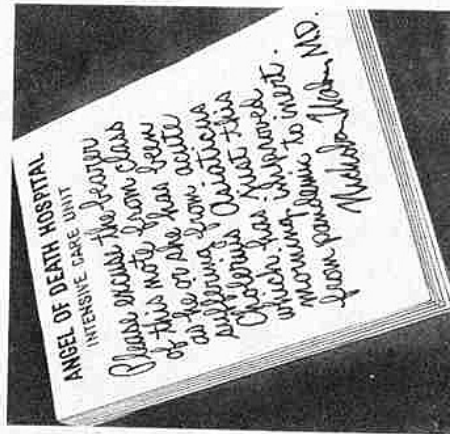 ANGEL OF DEATH HOSPITAL
INTENSIVE CARE UNIT
Please excuse the bearer
of this note from class
as he or she has been
suffering from acute
Asiaticus
Cholerus
which has just this
morning improved
from pandemic to inert.
M.D.